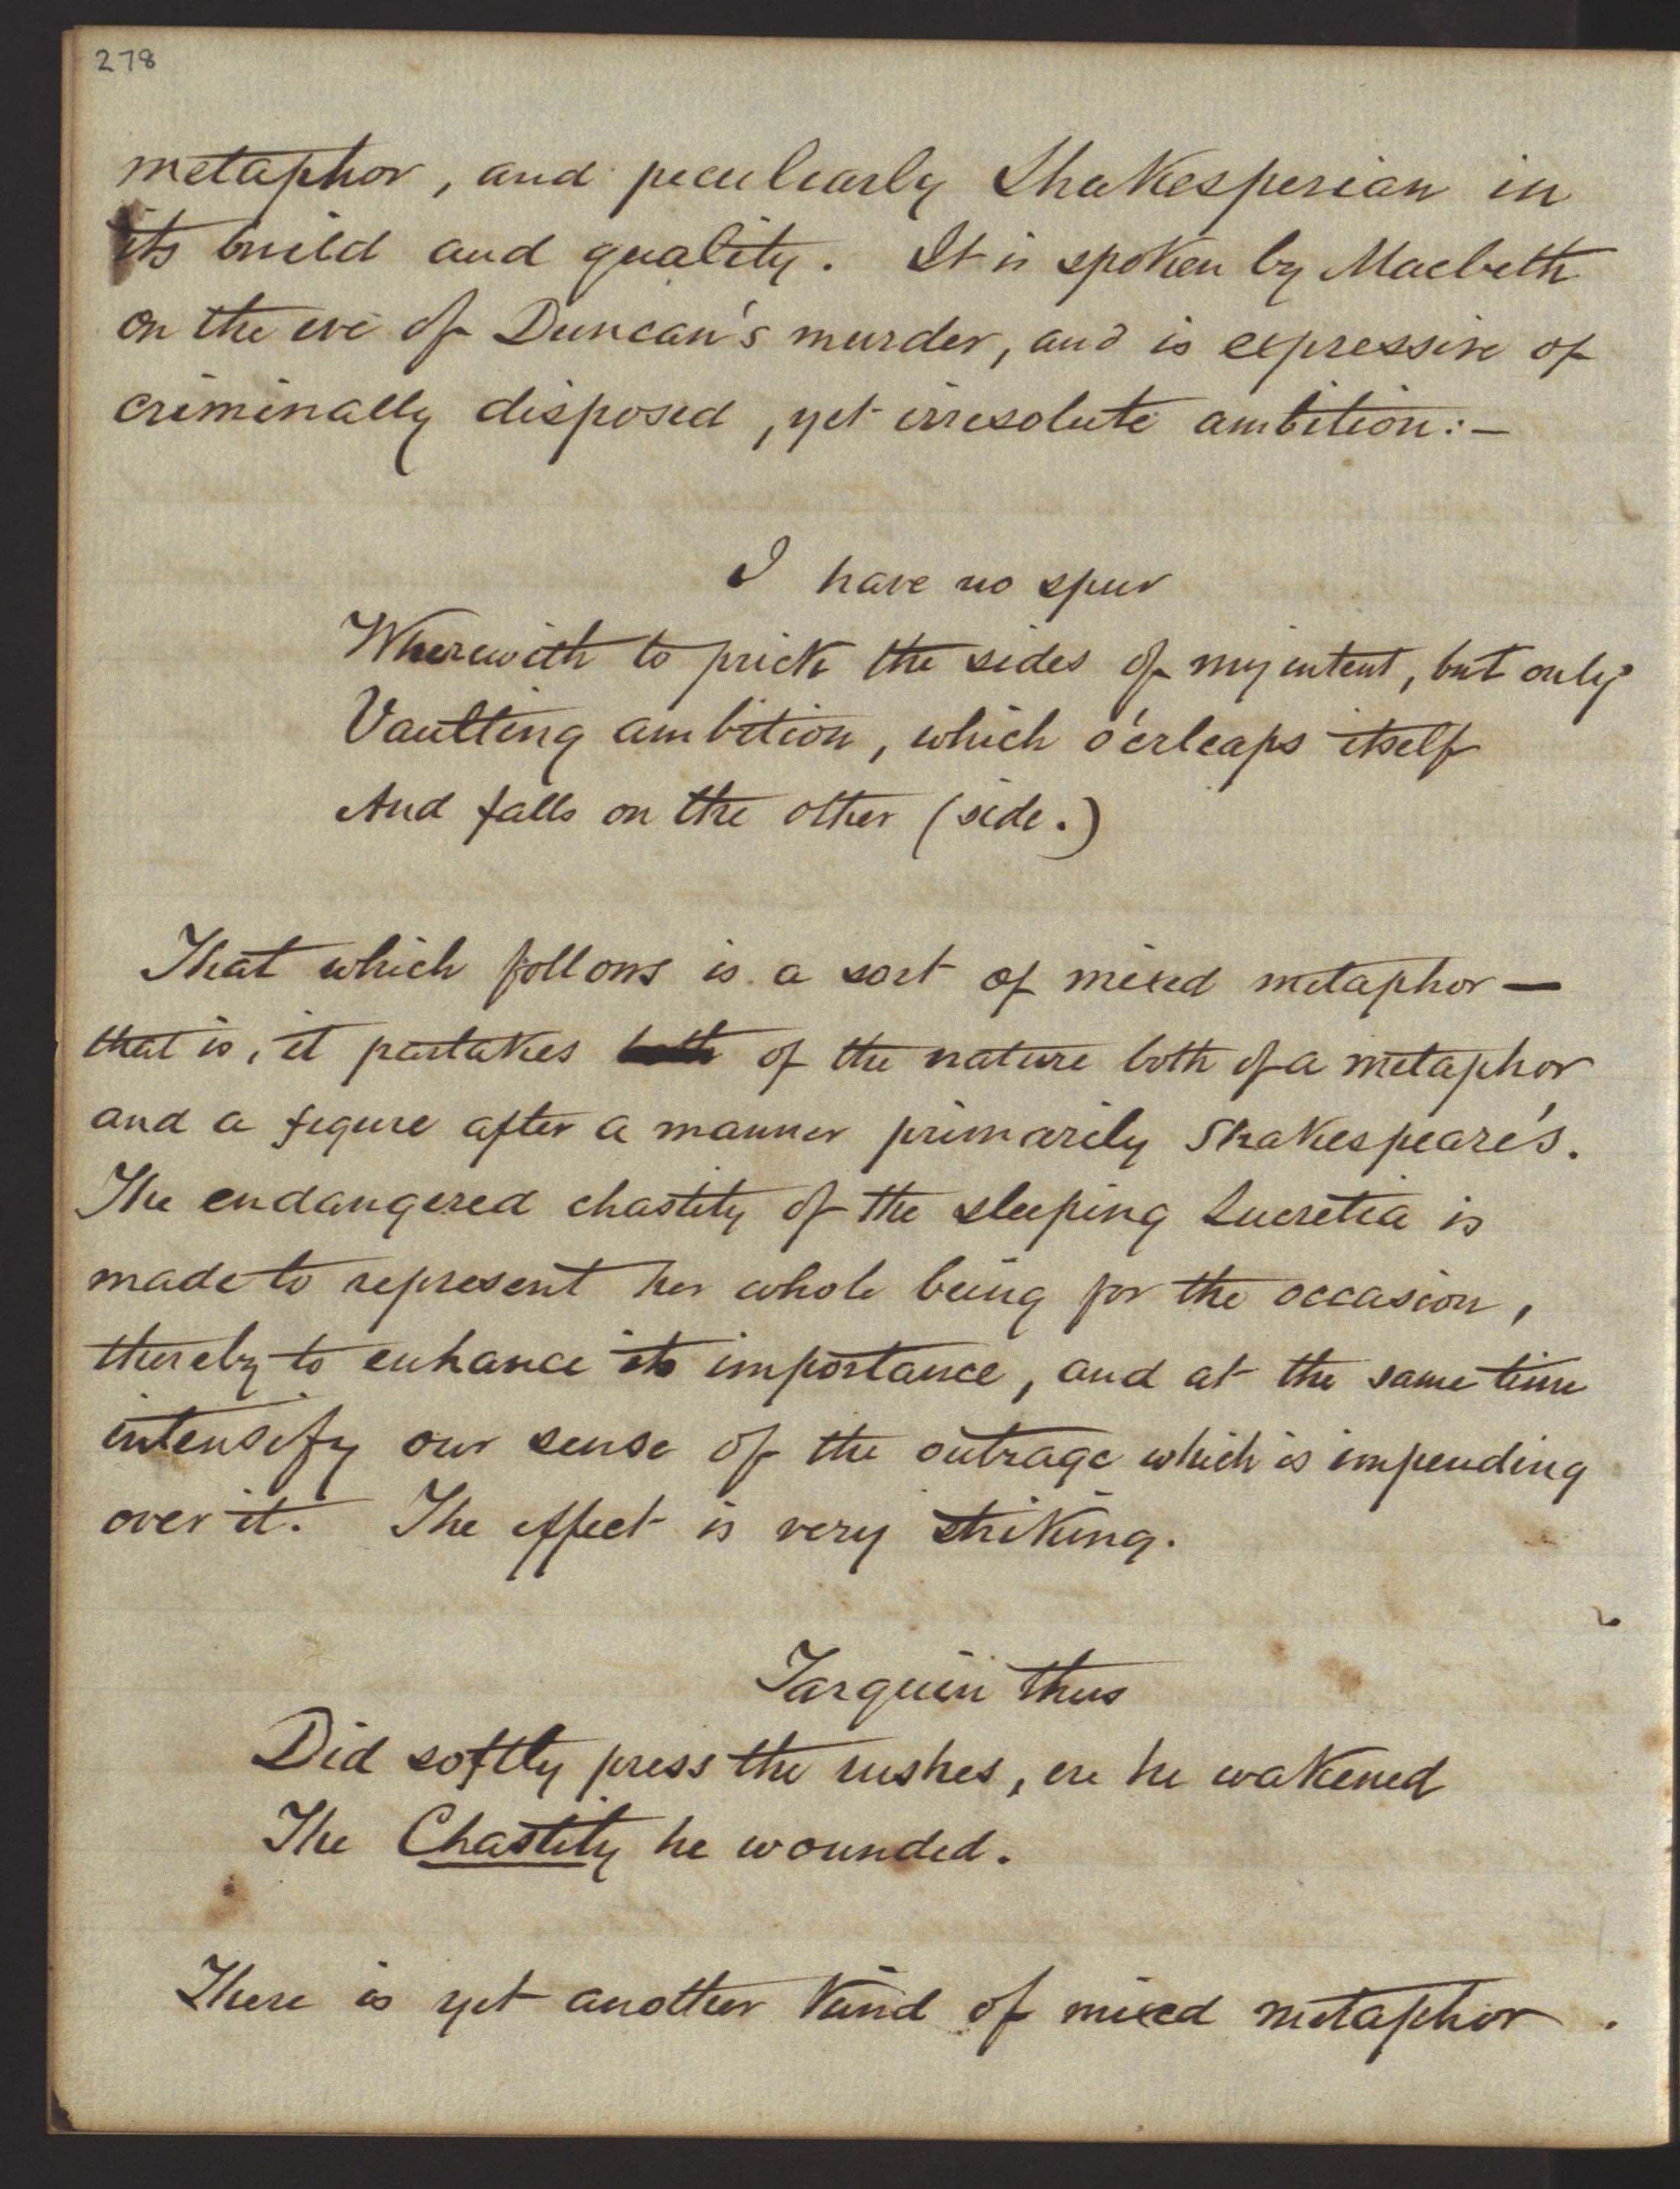 278
metaphor, and peculiarly Shakesperian in
its build and quality. It is spoken by Macbeth
on the eve of Duncan's murder, and is expressive of
criminally disposed, yet irresolute ambition:—
I have no spur
Wherewith to prick the sides of my intent, but only
Vaulting ambition, which o'erleaps itself
And falls on the other (side.)
That which follows is a sort of mixed metaphor—
that is, it partakes both of the nature both of a metaphor
and a figure after a manner primarily Shakespeare's.
The endangered chastity of the sleeping Lucretia is
made to represent her whole being for the occasion,
thereby to enhance its importance, and at the same time
intensify our sense of the outrage which is impending
over it. The effect is very striking.
Tarquin thus
Did softly press the rushes, ere he wakened
The Chastity he wounded.
There is yet another kind of mixed metaphor.